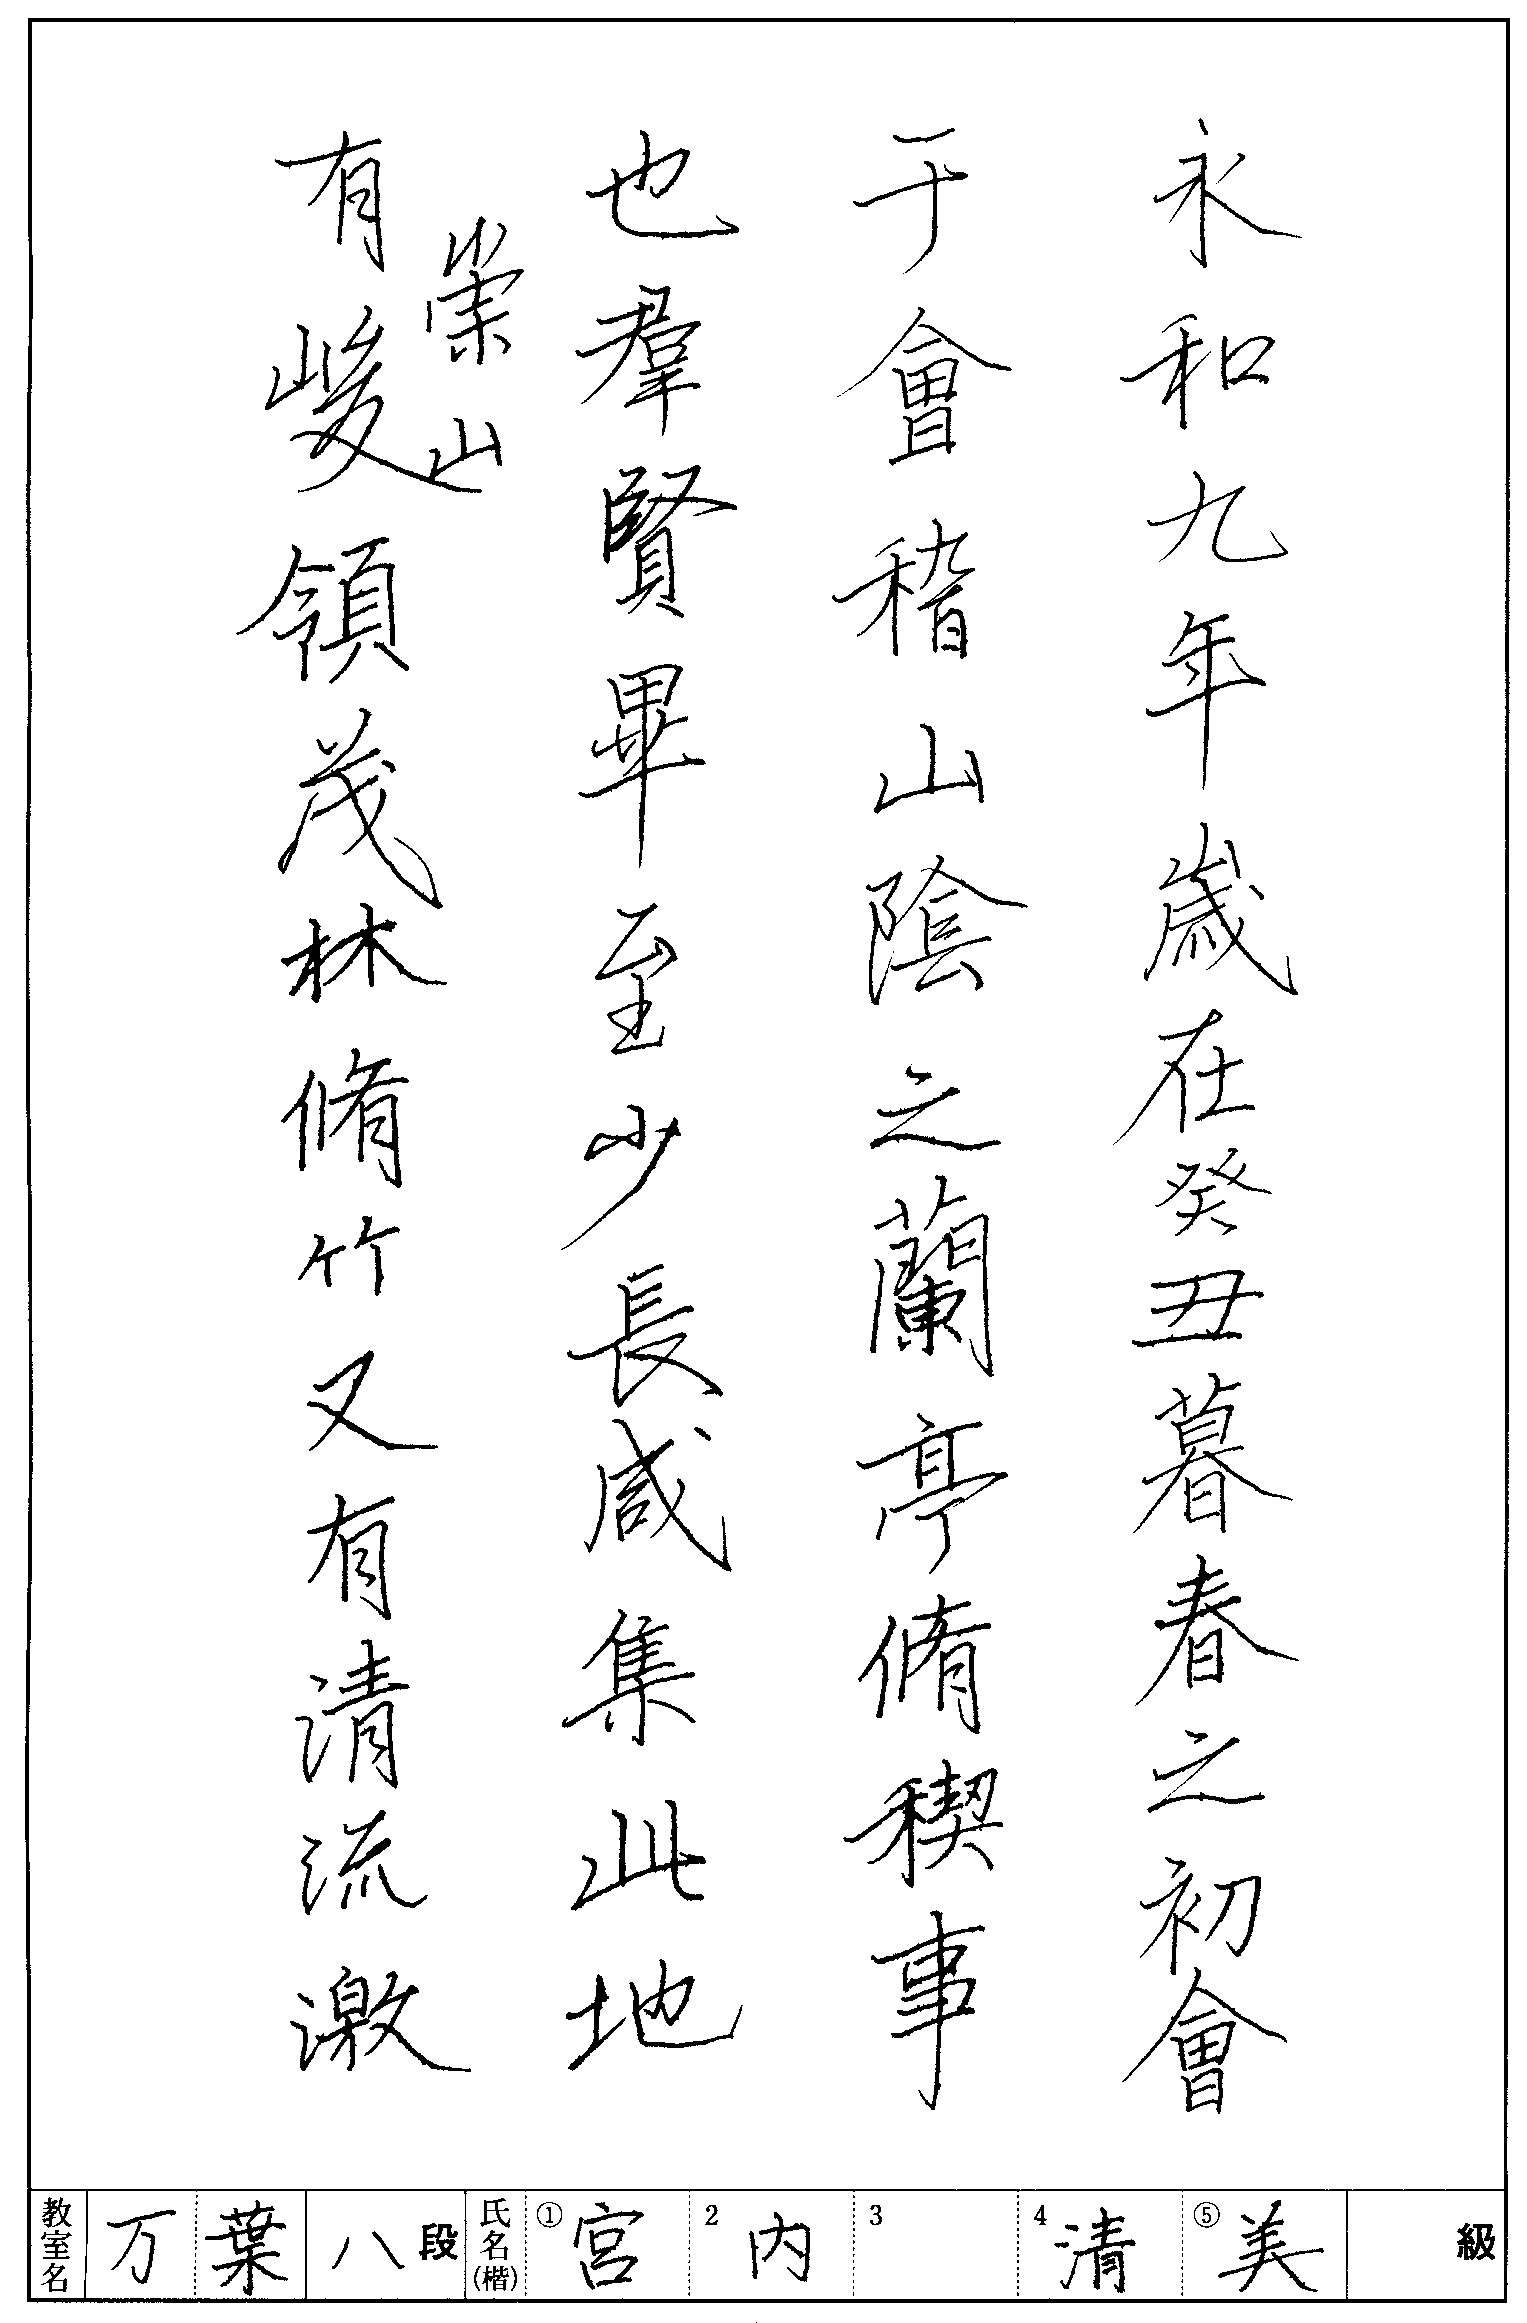 永和九年歳在癸丑暮春之初會
于會稽山陰之蘭亭脩稧事
也羣賢畢至少長咸集此地
崇山
有峻領茂林脩竹又有清流激
教室名 万葉 八段 氏名(楷) ①宮 2内 3 4清 ⑤美 級